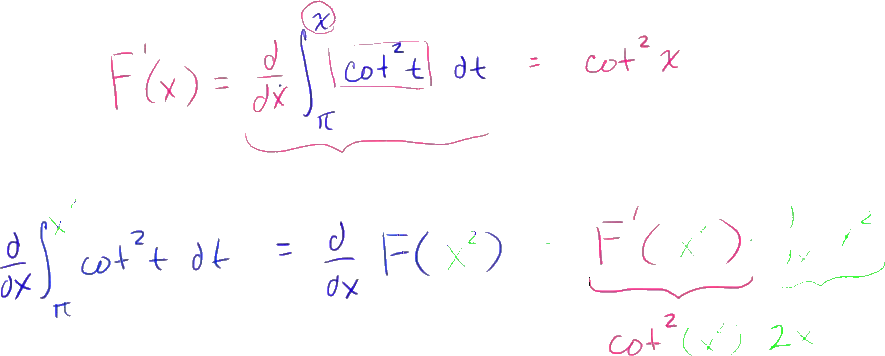 F'(x) = d/dx ∫_π^x cot² t dt = cot² x
d/dx ∫_π^x' cot² t dt = d/dx F(x²) F'(x').
cot²(x') 2x